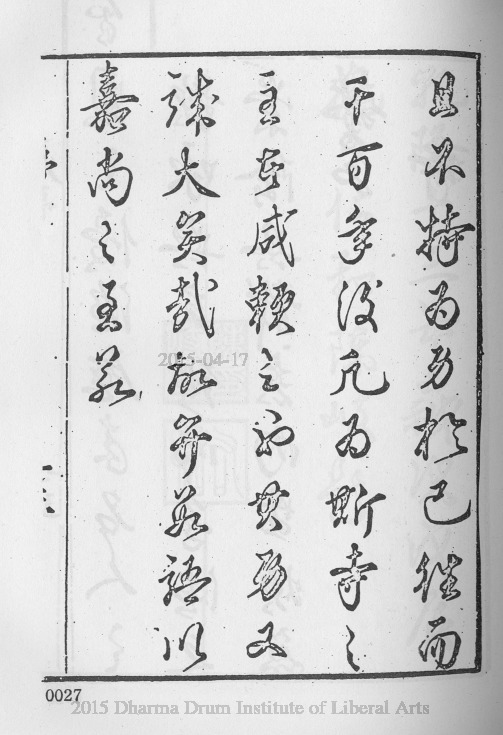 且不特為勞於已往而
千百年後凡為斯寺之
主者咸賴之而其勞又
誠大矣哉故弁數語以
嘉尚之
2015-04-17
0027
2015 Dharma Drum Institute of Liberal Arts